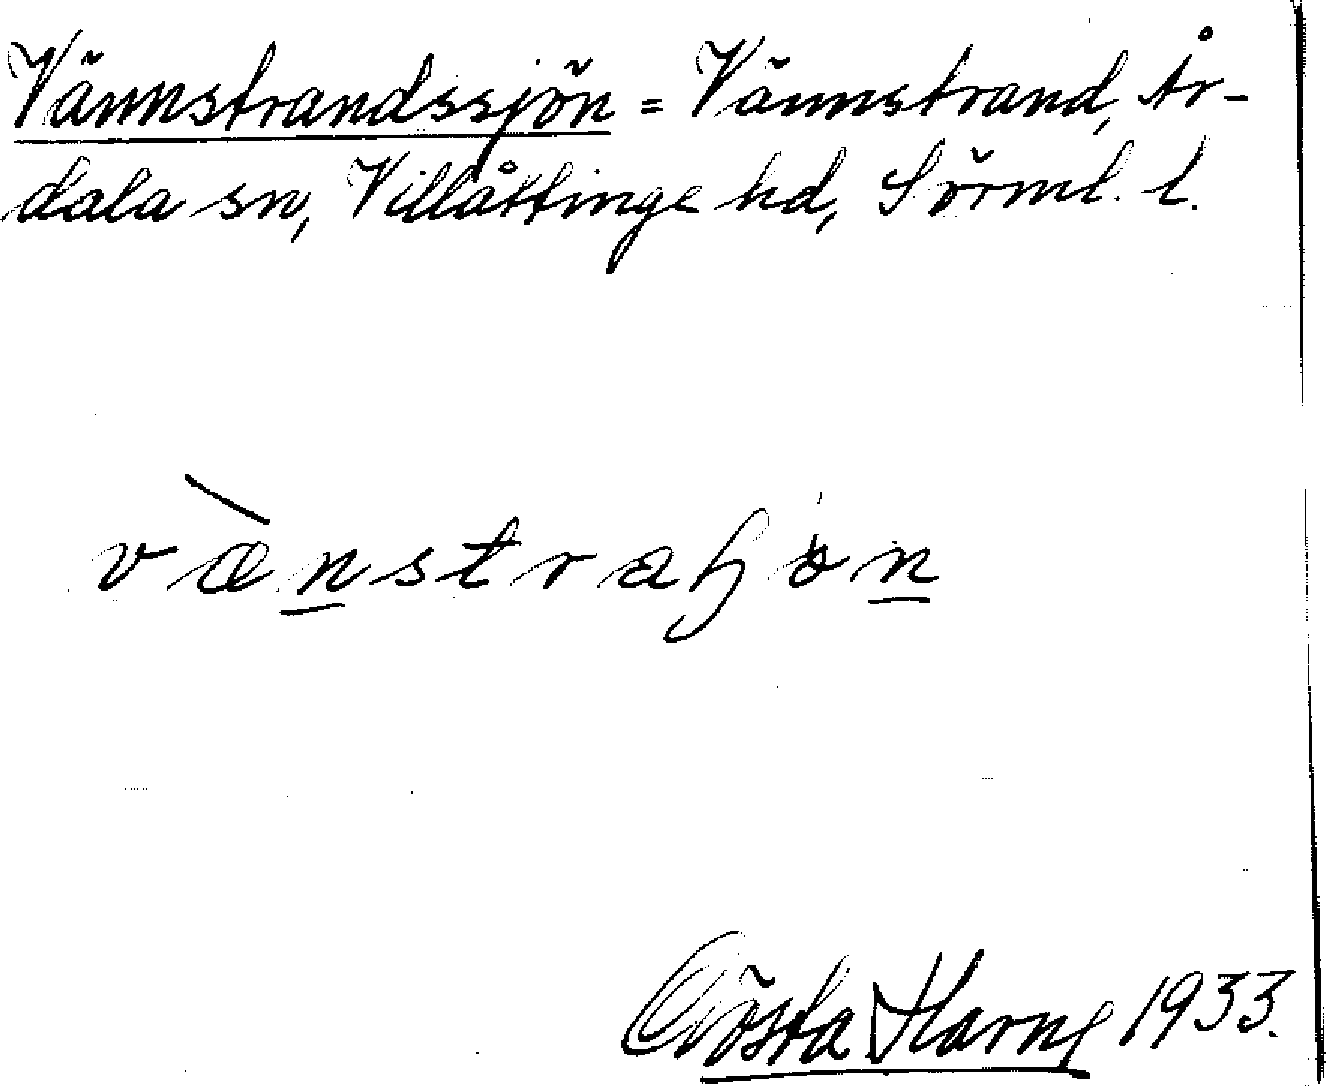 Vännstrandssjön = Vännstrand, År-
dala sn, Villåttinge hd, Sörml. l.
Gösta Harne 1933.